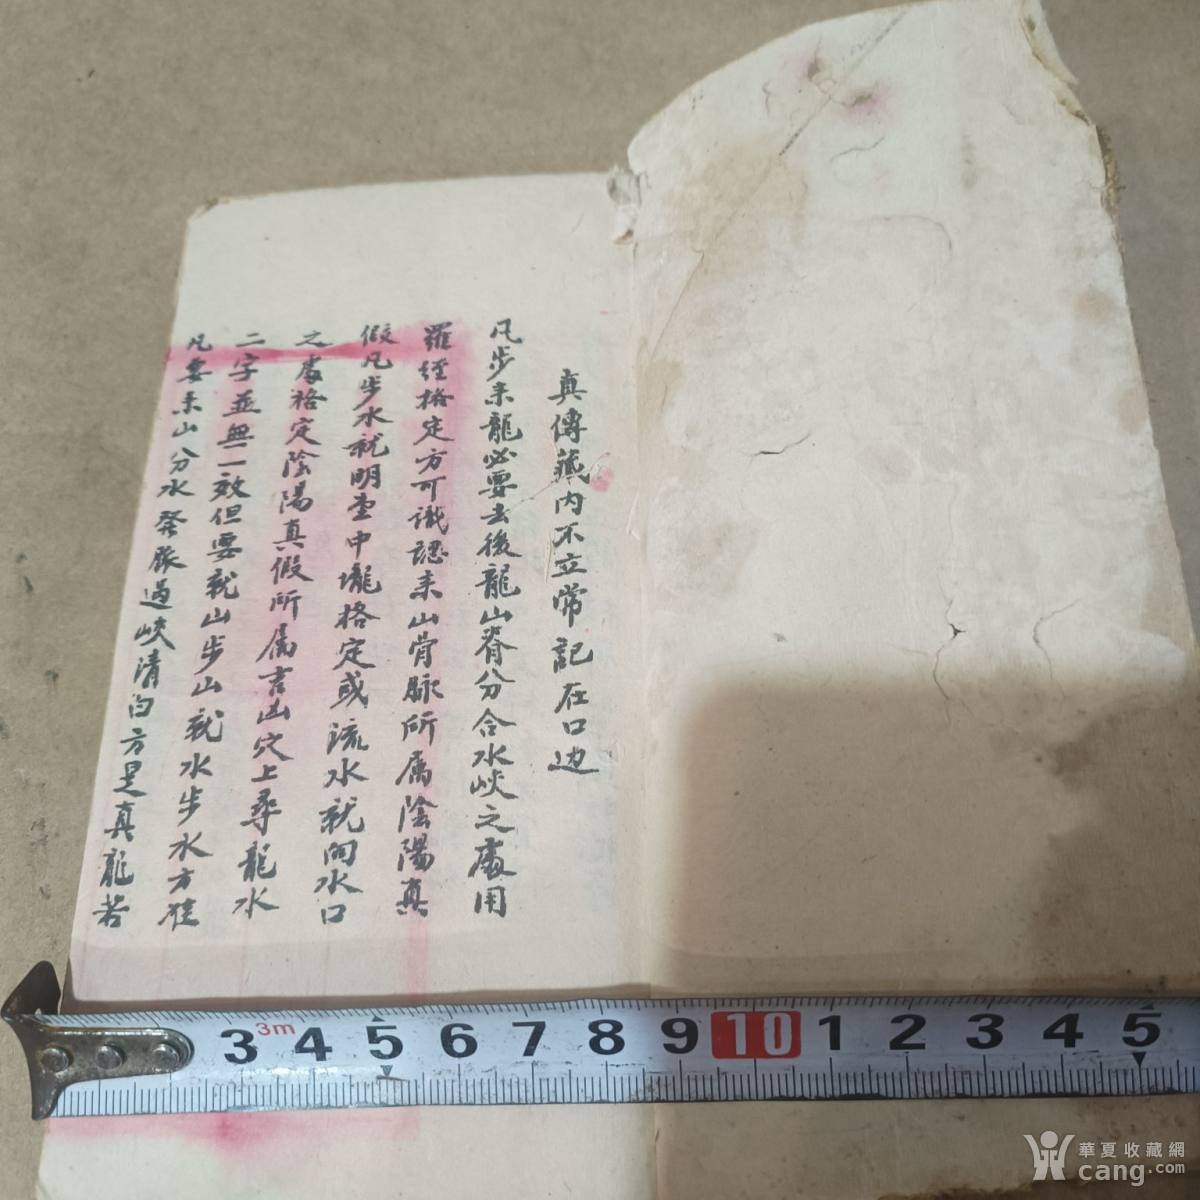 真傳藏內不立常記在口边
凡步來龍必要去後龍山脊分合水峽之處用
羅經格定方可識認來山骨脉所属陰陽真
假凡步水就明堂中壠格定或流水就向水口
之處格定陰陽真假所属吉凶穴上尋龍水
二字並無一效但要就山步山就水步水方准
凡要来山分水發脈過峽清白方是真龍若
3m
3 4 5 6 7 8 9 10 1 2 3 4 5
華夏收藏網
cang.com